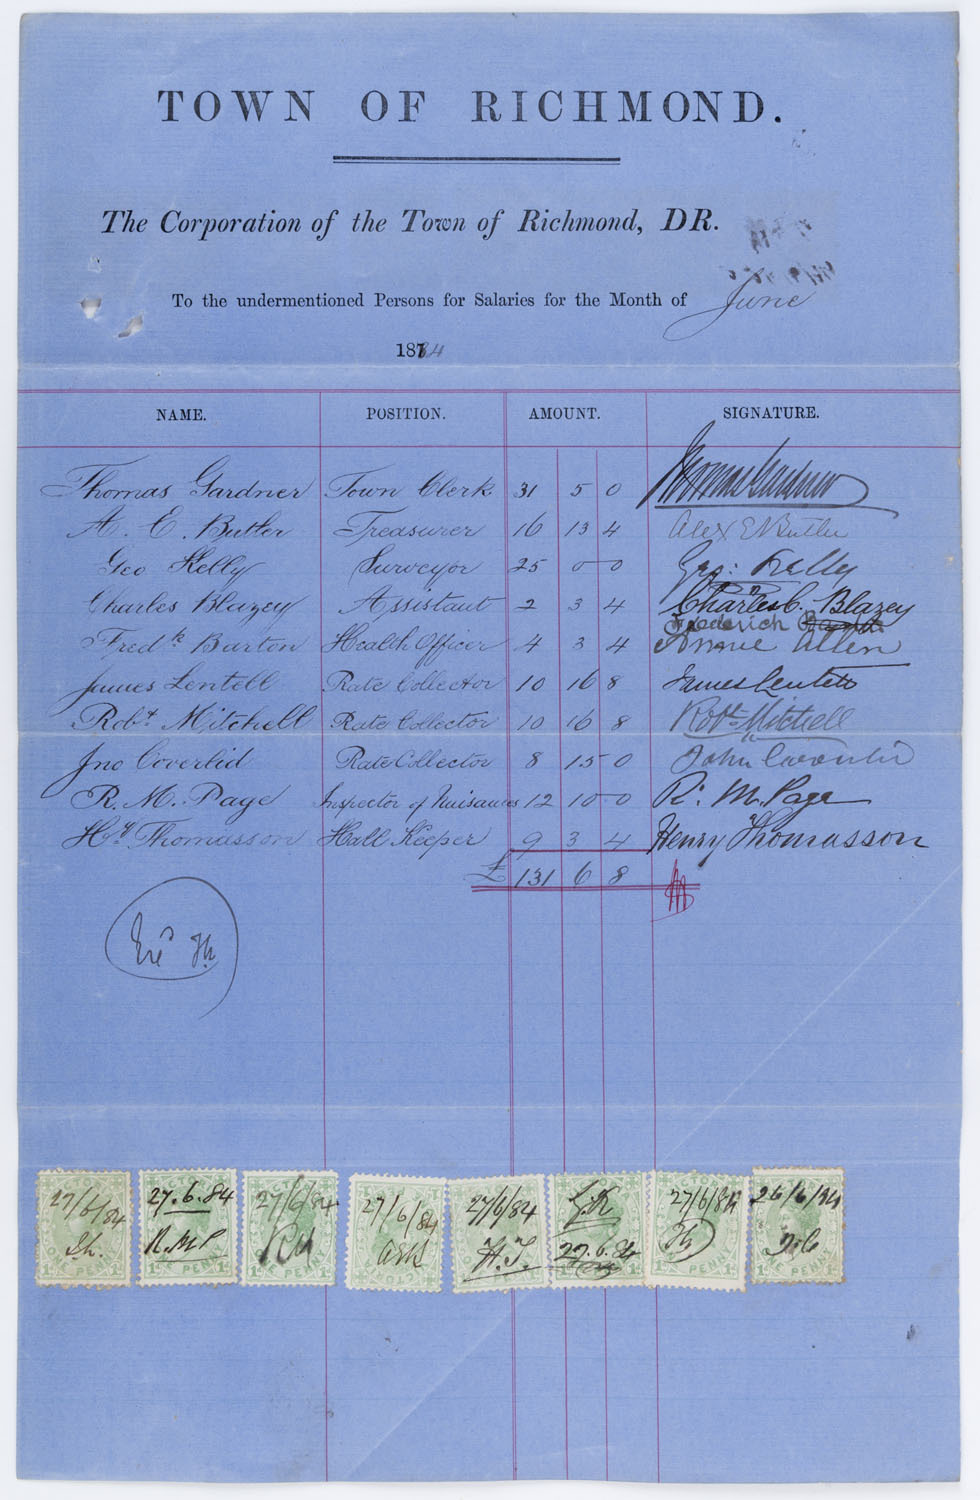 TOWN OF RICHMOND.
The Corporation of the Town of Richmond, DR.
To the undermentioned Persons for Salaries for the Month of June
1884
NAME. POSITION. AMOUNT. SIGNATURE.
Thomas Gardner Town Clerk 31 5 0 Thomas Gardner
A. E. Butler Treasurer 16 13 4 Alex E Butler
Geo Kelly Surveyor 25 0 0 Geo: Kelly
Charles Blazey Assistant 2 3 4 Charles C. Blazey
Frederick
Fredk Burton Health Officer 4 3 4 Annie Allen
James Lentell Rate Collector 10 16 8 James Lentell
Robt Mitchell Rate Collector 10 16 8 Robt Mitchell
Jno Coverlid Rate Collector 8 15 0 John Coverlid
R. M. Page Inspector of Nuisances 12 10 0 R: M. Page
Hy Thomasson Hall Keeper 9 3 4 Henry Thomasson
£ 131 6 8
27/6/84 27.6.84 27/6/84 27/6/84 27/6/84 G.K 27/6/84 26/6/84
R.M.P RM H.T. 27.6.84
ONE PENNY